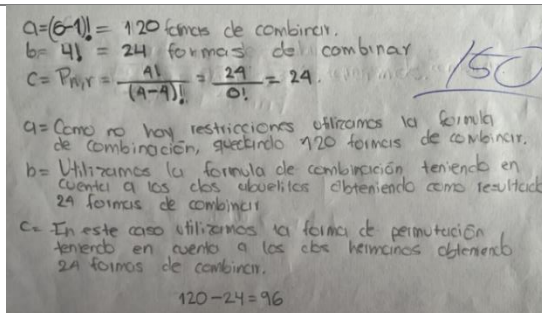 a=(6-1)!= 120 formas de combinar.
b= 4! = 24 formas de combinar
c= Pn,r = 4! / (4-4)! = 24 / 0! = 24.
150
a= Como no hay restricciones utilizamos la formula
de combinación, quedando 120 formas de combinar.
b= Utilizamos la formula de combinación teniendo en
cuenta a los dos abuelitos obteniendo como resultado
24 formas de combinar
c= En este caso utilizamos la forma de permutación
teniendo en cuenta a los dos hermanos obteniendo
24 formas de combinar.
120-24=96